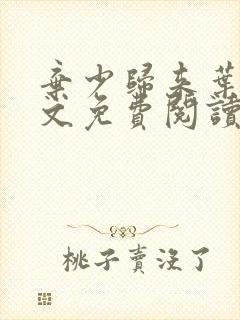 棄少歸來葉
文免費閱讀
桃子賣沒了